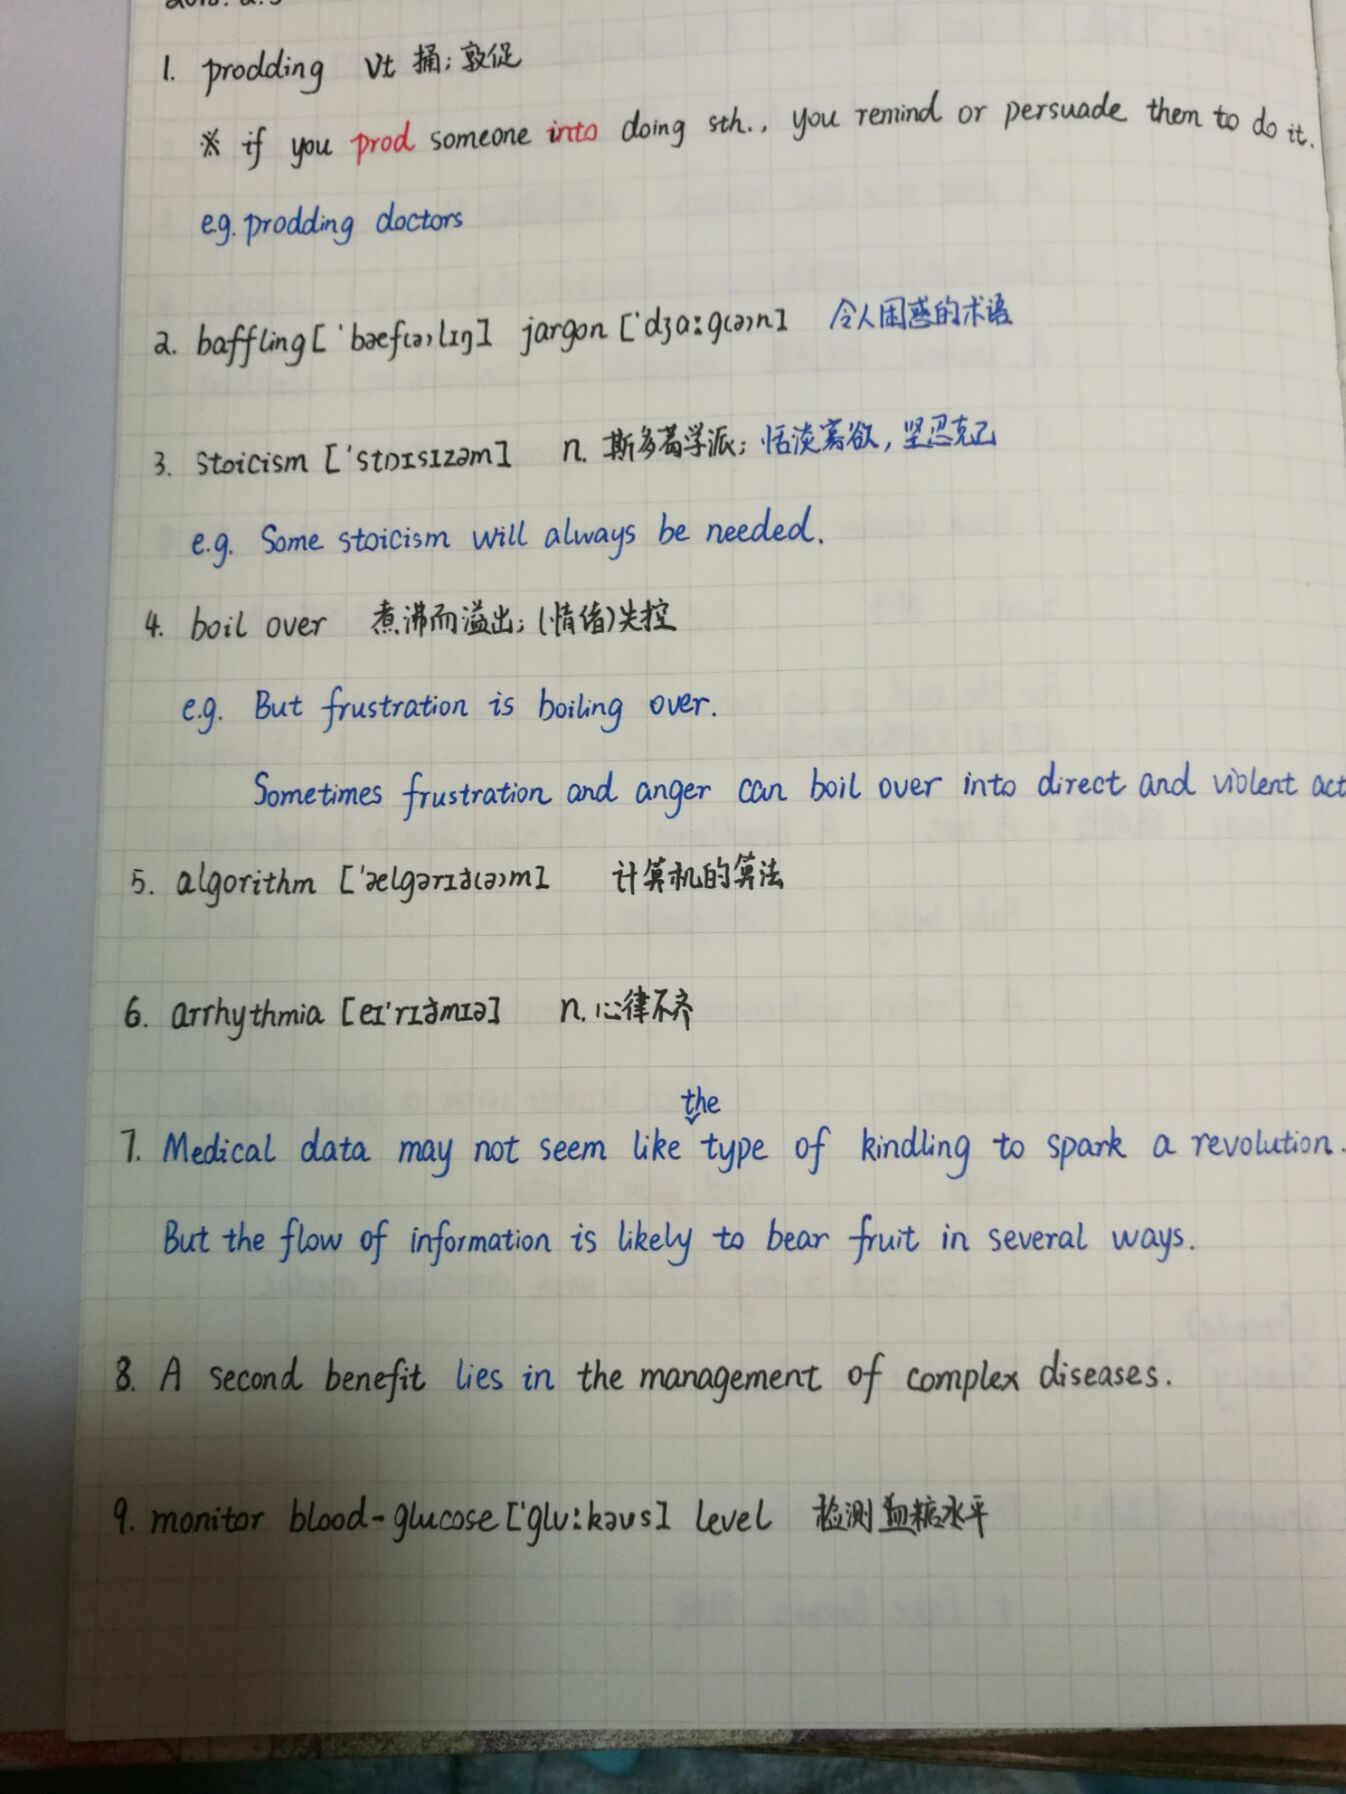 1. prodding vt 捅; 敦促
※ if you prod someone into doing sth., you remind or persuade them to do it.
e.g. prodding doctors
2. baffling ['bæf(ə)lɪŋ] jargon ['dʒɑːg(ə)n] 令人困惑的术语
3. stoicism ['stɒɪsɪzəm] n. 斯多葛学派; 恬淡寡欲, 坚忍克己
e.g. Some stoicism will always be needed.
4. boil over 煮沸而溢出; (情绪)失控
e.g. But frustration is boiling over.
Sometimes frustration and anger can boil over into direct and violent act
5. algorithm ['ælgərɪð(ə)m] 计算机的算法
6. arrhythmia [eɪ'rɪðmɪə] n. 心律不齐
7. Medical data may not seem like the type of kindling to spark a revolution.
But the flow of information is likely to bear fruit in several ways.
8. A second benefit lies in the management of complex diseases.
9. monitor blood-glucose ['gluːkəʊs] level 检测血糖水平